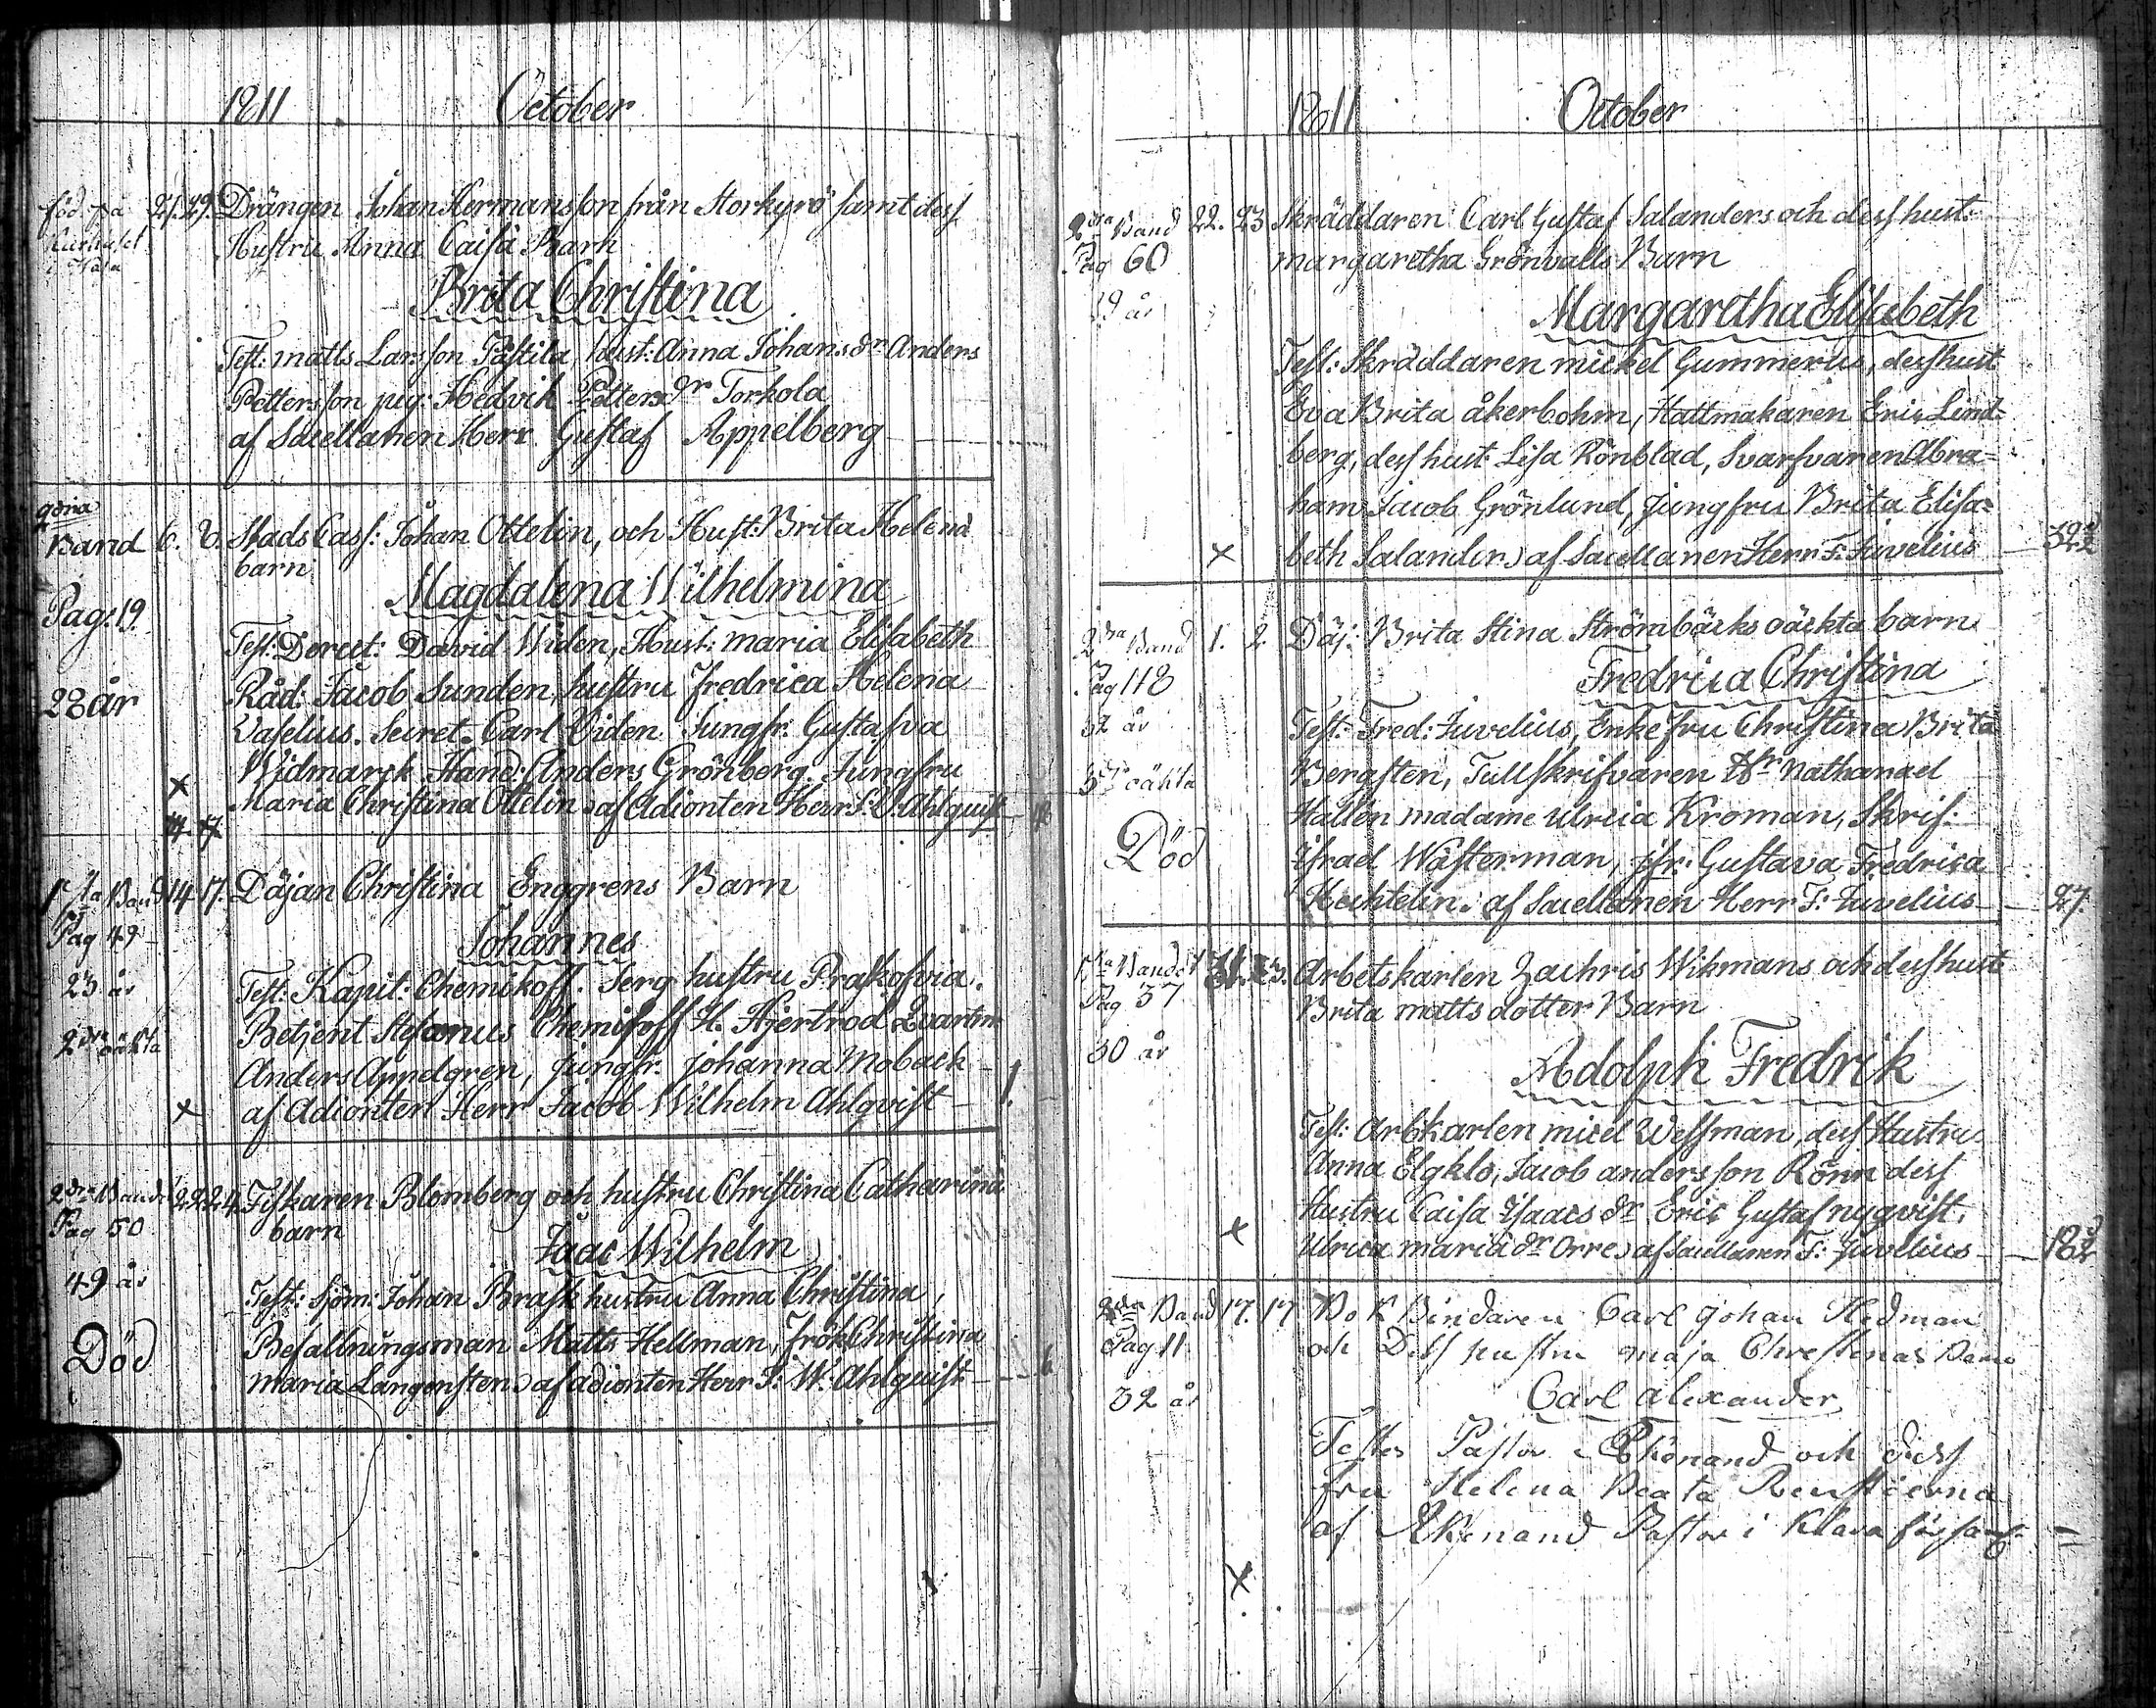 1811 October
född på 21. 29. Drängen Johan Hermansson från Storkyrö samt dess
Hustru Anna Caisa Barn
Brita Christina
Test: matts Larsson Påstila, hust: Anna Johans dr Anders
Pettersson pig: Hedvik Petters dr Torkola
af Sacellanen Herr Gustaf Appelberg
Band 6. 8. Stads Cass: Johan Ottelin, och Hust: Brita Helena
barn
Magdalena Wilhelmina
Pag: 19.
Test: David Widen, Hust: maria Elisabeth
28 år
Råd: Jacob Sunden, hustru Fredrica Helena
Vaselius. Secret. Carl Viden Jungfr. Gustafva
Widmarck Hand: Anders Grönberg. Jungfru
x
Maria Christina Ottelin) af Adionten Herr J: W: Ahlquist
1sta Band 14 17. Däjan Christina Enggrens Barn
Pag 49
Johannes
23 år
Test: Kapit: Chemikoff. Serg hustru Praskofvia.
Betjent Stefanus Chemikoff H. Hjertrod Qvartm
2dra oäkta
Anders Appelgren, Jungfr. Johanna Moback
x af Adionten Herr Jacob Wilhelm Ahlqvist 1.
2dra Bandet 22 24. Fiskaren Blomberg och hustru Christina Catharina
Pag 50 barn
Isaac Wilhelm
49 år
Test: Sjöm: Johan Brask hustru Anna Christina,
Död Befallningsman Matts Hellman, Frök Christina
maria Langensten) af adionten Herr J: W: Ahlquist 6
1811 October
2dra Band 22. 23 Skräddaren Carl Gustaf Salanders och dess hust:
Pag 60 margaretha Grönvalls Barn
29 år
Margaretha Elisabeth
Test: Skräddaren mickel Gummerus, dess hust
Eva Brita åkerbohm, Hattmakaren Eric Lind=
berg, dess hust: Lisa Rönblad, Svarfvaren Abra=
ham Jacob Grönlund, Jungfru Brita Elisa=
x beth Salander) af Sacellanen Herr F: Juvelius
2dra Band 1. 2. Däj: Brita Stina Strömbäcks oäckta barn
Pag 118
Fredrica Christina
32 år
Test: Fred: Juvelius, Enkefru Christina Brita
Bergsten, Tullskrifvaren Hr Nathanael
3die oäkta
Hallen madame Ulrica Kroman, Skrif:
Död
Israel Wästerman, jfr: Gustava Fredrica
Hechtelin. af Sacellanen Herr F: Juvelius 27.
1sta Bandet Arbetskarlen Zachris Wikmans och dess hust
Pag 37 Brita matts dotter Barn
30 år
Adolph Fredrik
Test: Arbkarlen micel Wessman, dess Hustru
Anna Elgklo, Jacob andersson Rönn dess
Hustru Caisa Isaacs dr Eric Gustaf nyqvist.
x
Ulrica maria dr Orre) af Sacellanen F: Juvelius
2dra Band 17. 17 Bok Bindaren Carl Johan Hedman
Pag 11 och Dess hustru Maja Christinas Barn
32 år
Carl Alexander
Testes Pastor Ekenand och dess
fru Helena Beata Renstierna
af Ekenand Pastor i Klara församl:
x